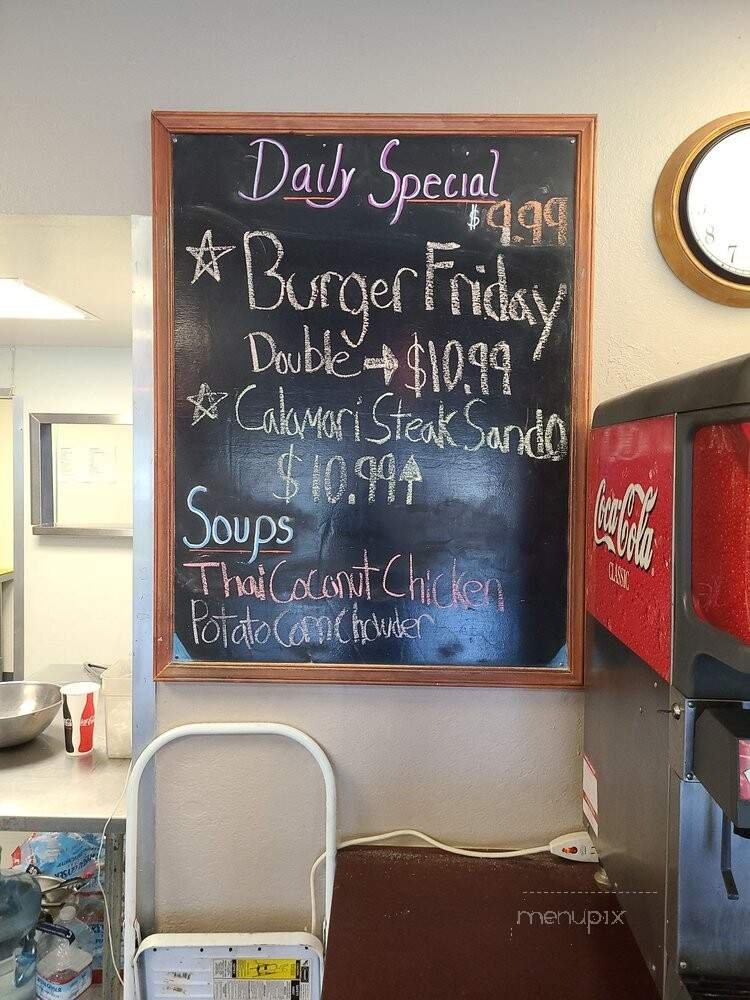 Daily Special
$9.99
Burger Friday
Double → $10.99
Calamari Steak Sando
$10.99↑
Soups
Thai Coconut Chicken
Potato Corn Chowder
8
7
Coca-Cola
CLASSIC
menupix